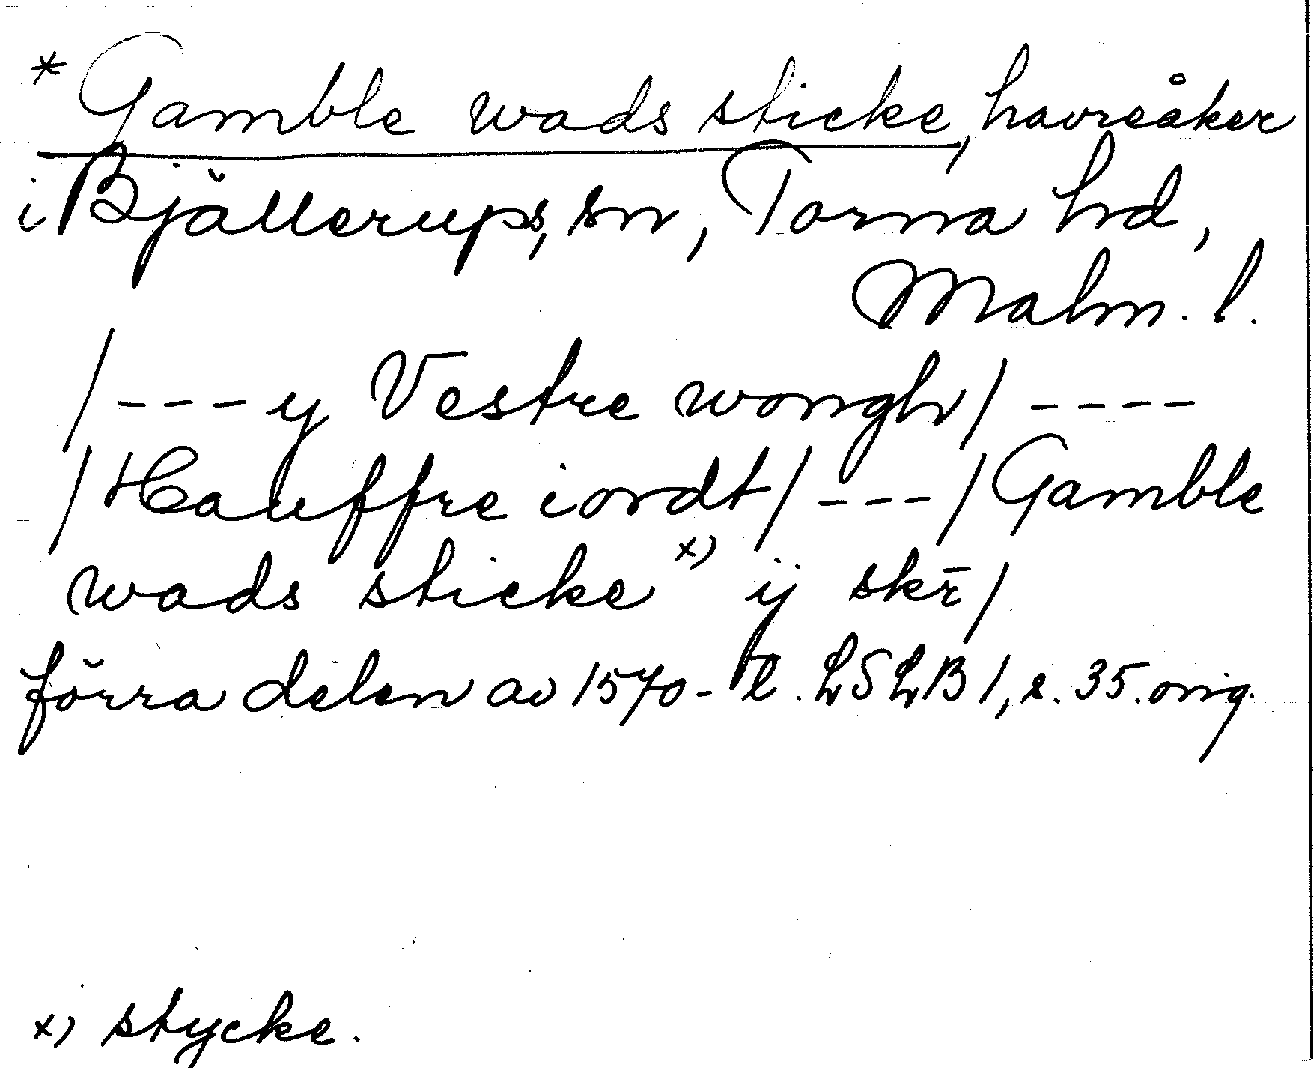 * Gamble wads sticke, havreåker
i Bjällerups, sn, Torna hd,
Malm. l.
/---y Vestre wongh/ ----
/Hauffre iordt/---/Gamble
wads sticke x) ij skr̄/
förra delen av 1570-t. LSLB 1, s. 35. orig.
x) stycke.